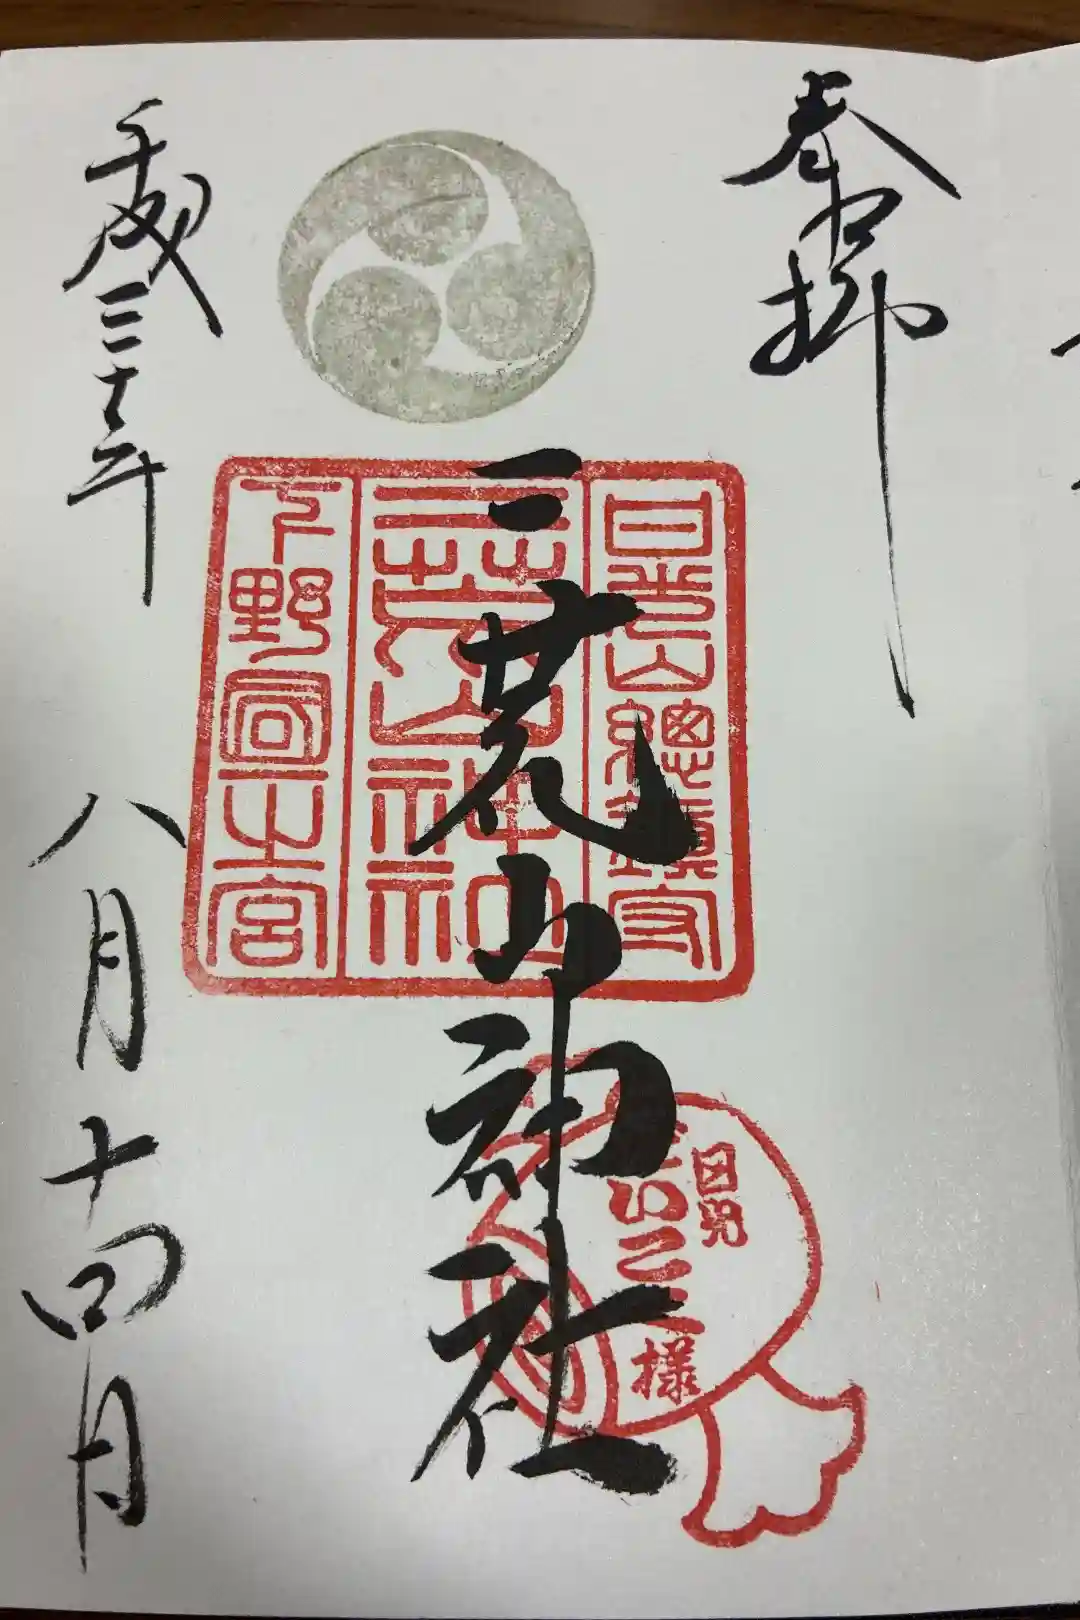 奉拝
日光山總鎮守
二荒山神社
下野國一之宮
二荒山神社
日光
だいこく様
平成三十年
八月十四日